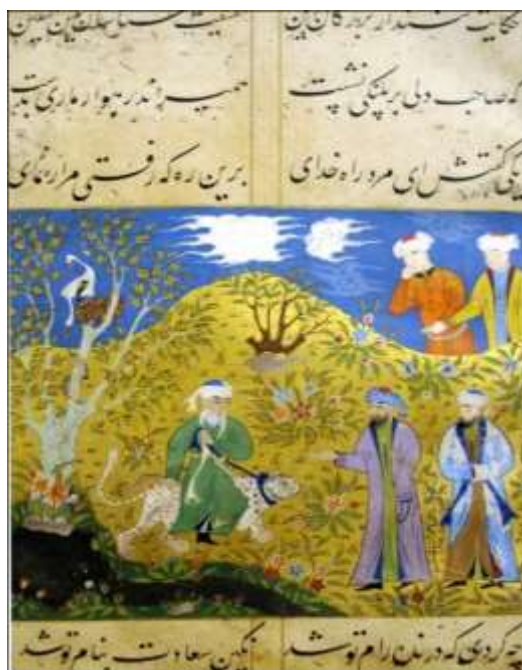 حکایت کنند از بزرگان دین حقیقت شناسان عین الیقین
که صاحب دلی بر پلنگی نشست همیراند رهوار و ماری بدست
یکی گفتش ای مرد راه خدای برین ره که رفتی مرا رهنمای
چه کردی که درنده رام تو شد نگین سعادت بنام تو شد